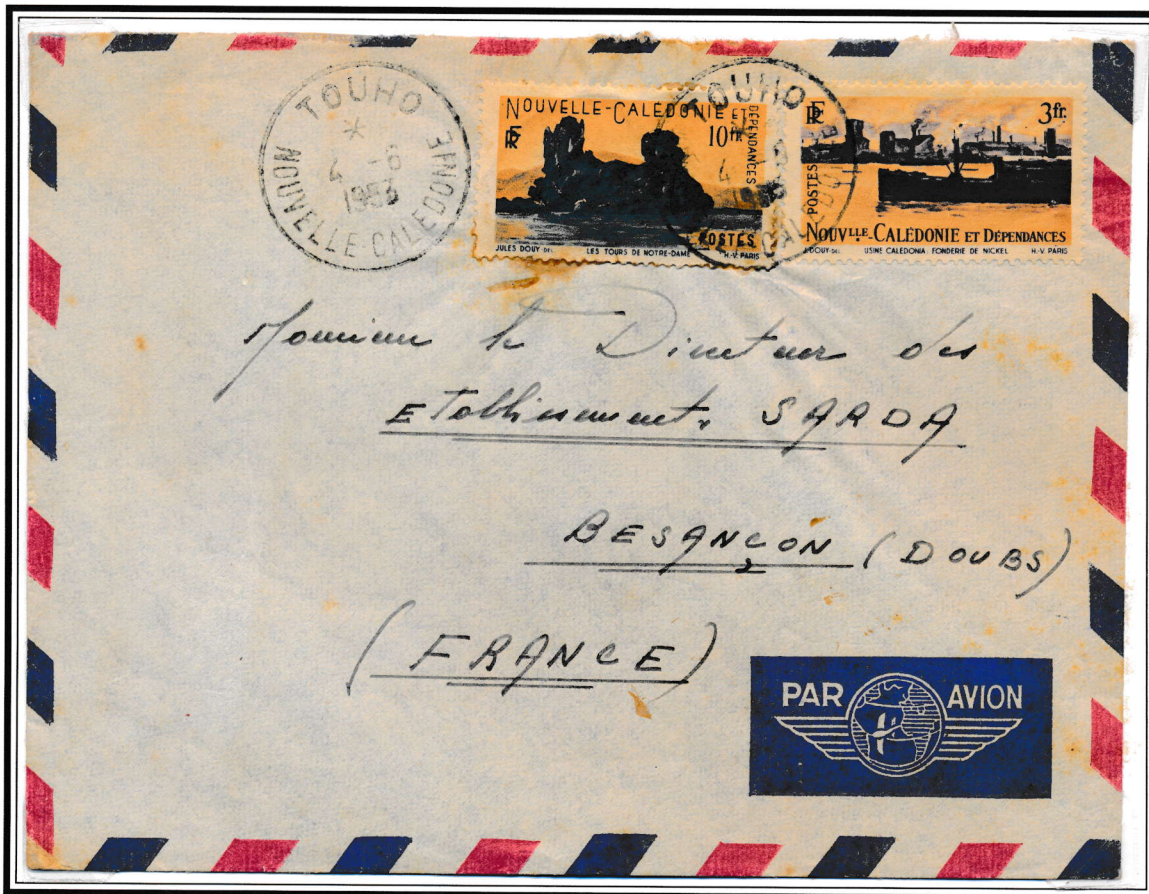 TOUHO
4 -6
1953
NOUVELLE-CALEDONIE
NOUVELLE-CALÉDONIE ET
DÉPENDANCES
RF
10fr.
POSTES
JULES DOUY DEL.
LES TOURS DE NOTRE-DAME
H.-V. PARIS
TOUHO
4
RF
3fr.
POSTES
NOUVLLE-CALÉDONIE ET DÉPENDANCES
J. DOUY-DEL.
USINE CALEDONIA: FONDERIE DE NICKEL
H.-V. PARIS
Monsieur le Directeur des
Etablissements SARDA
BESANÇON (DOUBS)
(FRANCE)
PAR AVION